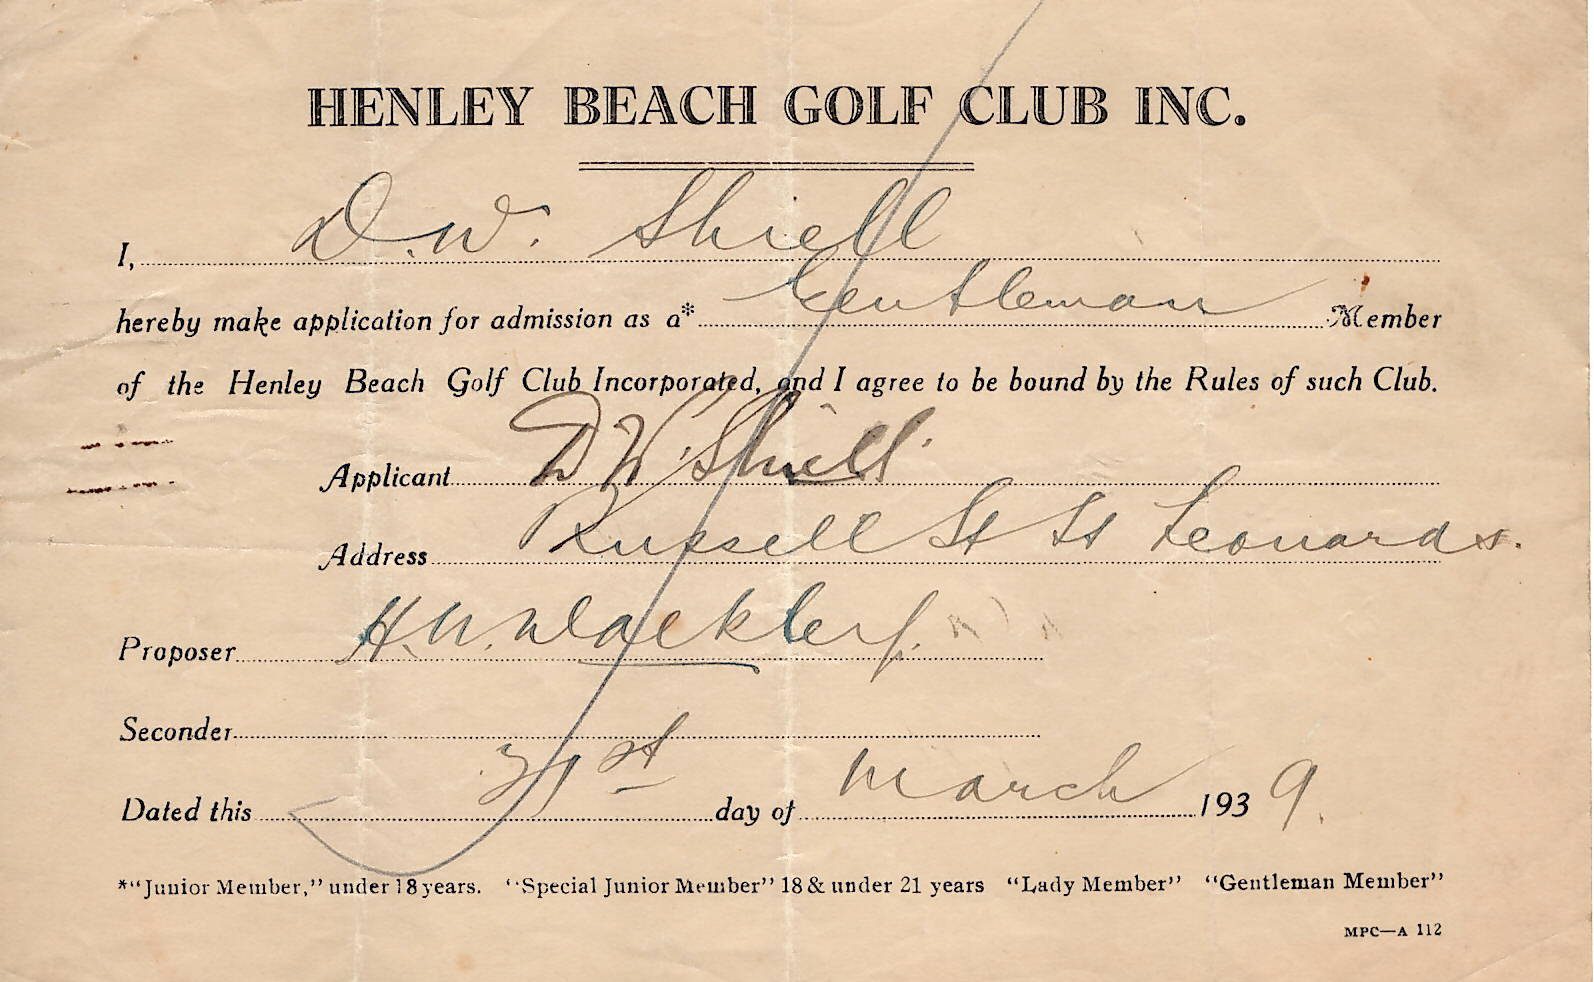 HENLEY BEACH GOLF CLUB INC.
I, D. W. Shiell
hereby make application for admission as a* Gentleman Member
of the Henley Beach Golf Club Incorporated, and I agree to be bound by the Rules of such Club.
Applicant D W Shiell
Address Russell St St Leonards.
Proposer H. W.
Seconder
Dated this 31st day of March 1939.
*"Junior Member," under 18 years. "Special Junior Member" 18 & under 21 years "Lady Member" "Gentleman Member"
MPC—A 112